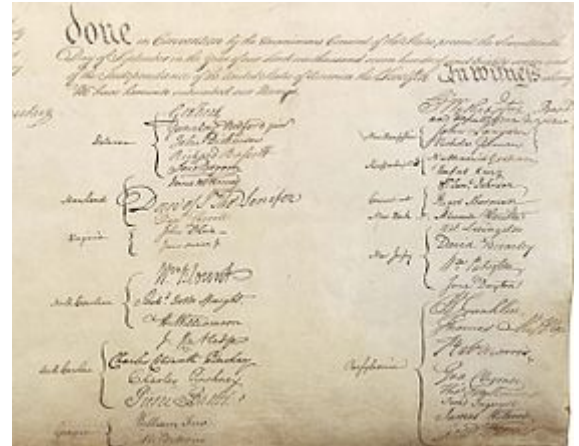 done in Convention by the Unanimous Consent of the States present the Seventeenth
Day of September in the year of our Lord one thousand seven hundred and
of the Independance of the United States of America the Twelfth In witness
We have hereunto subscribed our Names,
Delaware
Gunning Bedford jun
John Dickinson
Richard Bassett
Jaco Broom
James McHenry
Maryland
Dan of St Tho Jenifer
Danl Carroll
Virginia
John Blair
North Carolina
Wm Blount
Richd Dobbs Spaight
Hu Williamson
South Carolina
J. Rutledge
Charles Cotesworth Pinckney
Charles Pinckney
Pierce Butler
Georgia
William Few
New Hampshire
John Langdon
Nicholas Gilman
Massachusetts
Nathaniel Gorham
Rufus King
Connecticut
Wm Saml Johnson
Roger Sherman
New York
Alexander Hamilton
New Jersey
Wil Livingston
David Brearley
Wm Paterson
Jona Dayton
Pensylvania
B Franklin
Thomas Mifflin
Robt Morris
Geo Clymer
Thos FitzSimons
Jared Ingersoll
James Wilson